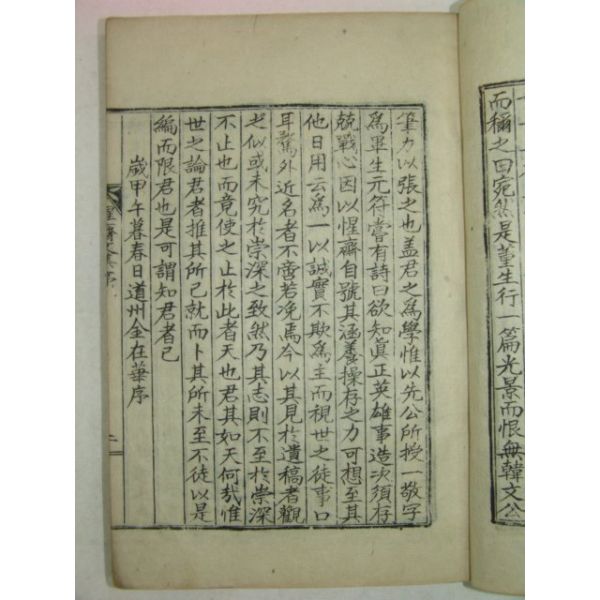 而稱之曰宛然是董生行一篇光景而恨無韓文公
筆力以張之也盖君之爲學惟以先公所授一敬字
爲畢生元符嘗有詩曰欲知眞正英雄事造次須存
兢戰心因以惺齋自號其涵養操存之力可想至其
他日用云爲一以誠實不欺爲主而視世之徒事口
耳騖外近名者不啻若凂焉今以其見於遺稿者觀
之似或未究於崇深之致然乃其志則不至於崇深
不止也而竟使之止於此者天也君其如天何哉惟
世之論君者推其所已就而卜其所未至不徒以是
編而限君也是可謂知君者已
歲甲午暮春日道州金在華序
惺齋
二